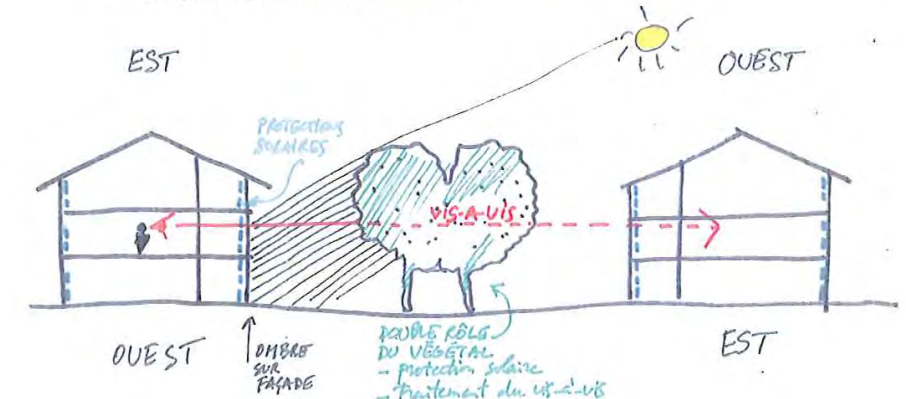 EST
OUEST
PROTECTIONS
SOLAIRES
VIS-A-VIS
OUEST
OMBRE
SUR
FAÇADE
DOUBLE RÔLE
DU VÉGÉTAL
- protection solaire
- traitement du vis-à-vis
EST